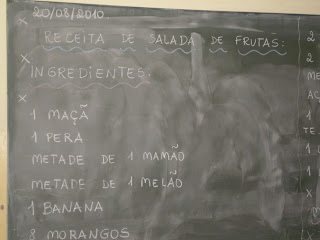 20/08/2010
x
RECEITA DE SALADA DE FRUTAS:
x
INGREDIENTES.
x
1 MAÇÃ
1 PERA
METADE DE 1 MAMÃO
METADE DE 1 MELÃO
1 BANANA
8 MORANGOS
2
2
ME
AÇ
1
TE.
1
x